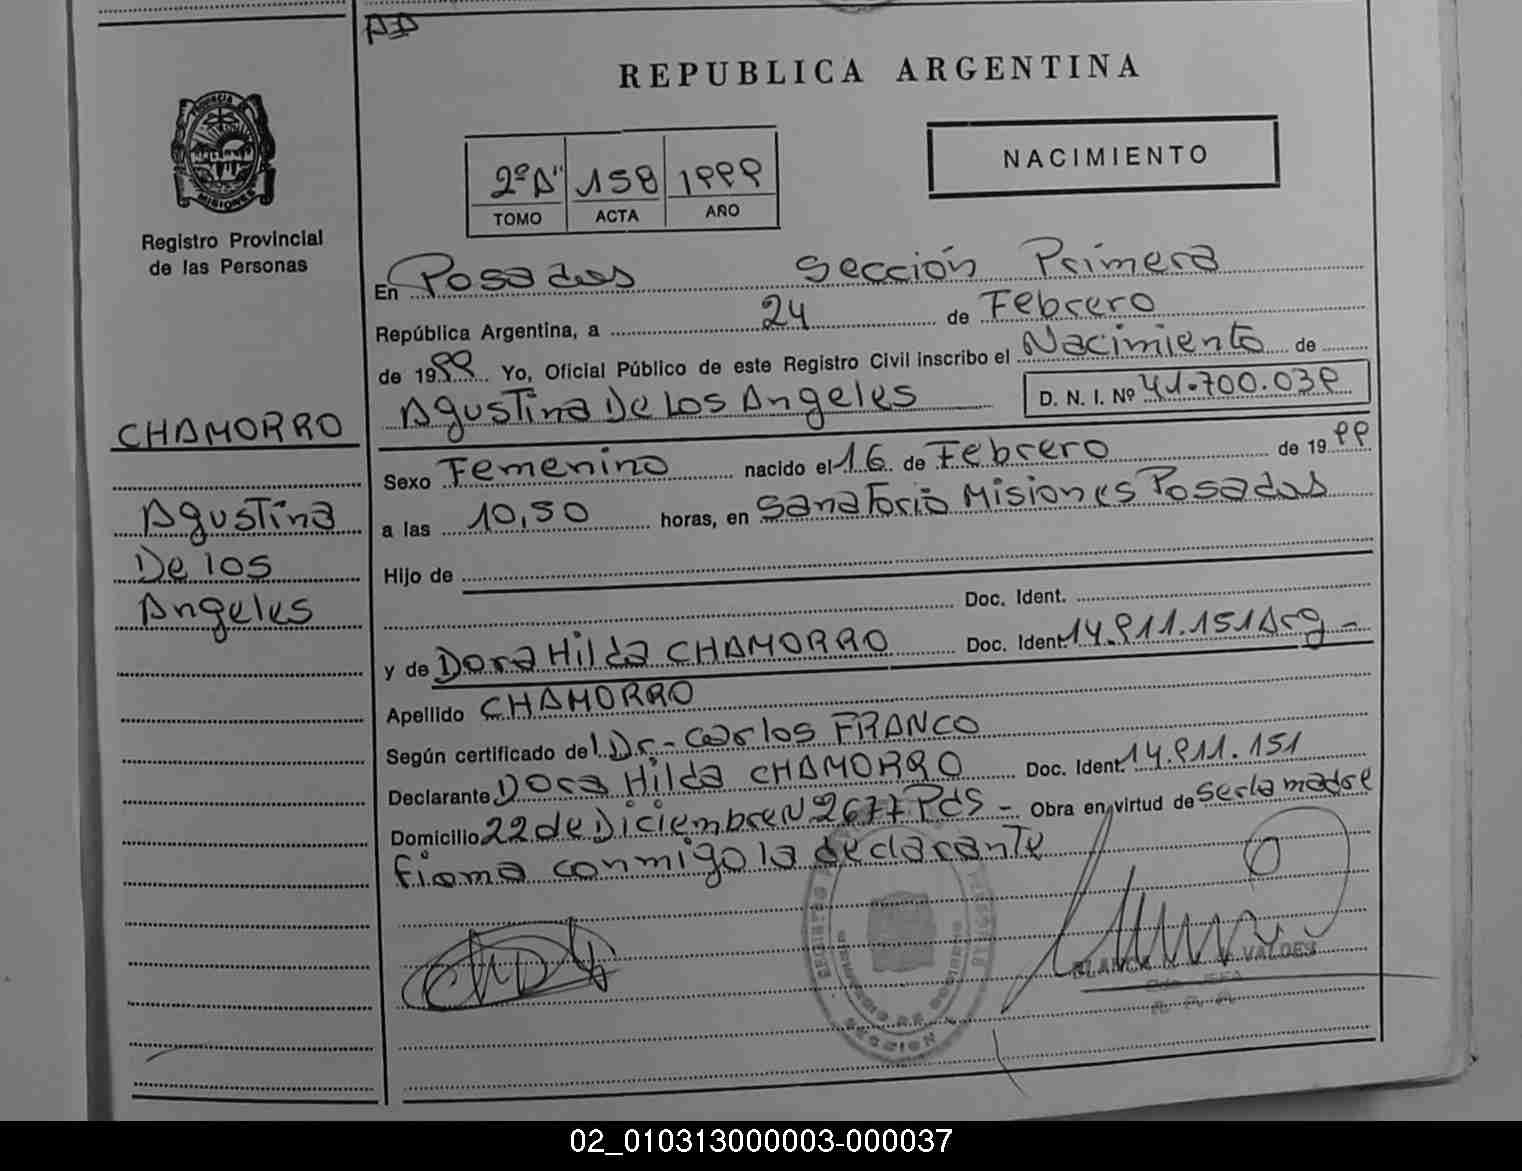 REPUBLICA ARGENTINA
PROVINCIA DE
MISIONES
Registro Provincial
de las Personas
2º "A" 158 1999
TOMO ACTA AÑO
NACIMIENTO
En Posadas Sección Primera
República Argentina, a 24 de Febrero
de 1999 Yo, Oficial Público de este Registro Civil inscribo el Nacimiento de
Agustina De Los Angeles D. N. I. Nº 41.700.039
CHAMORRO
Agustina
De los
Angeles
Sexo Femenino nacido el 16 de Febrero de 1999
a las 10,50 horas, en Sanatorio Misiones Posadas
Hijo de
Doc. Ident.
y de Dora Hilda CHAMORRO Doc. Ident. 14.911.151 Arg -
Apellido CHAMORRO
Según certificado del Dr.- Carlos FRANCO
Declarante Dora Hilda CHAMORRO Doc. Ident. 14.911.151
Domicilio 22 de Diciembre N 2677 Pds - Obra en virtud de ser la madre
firma conmigo la declarante
BLANCA VALDES
02_010313000003-000037